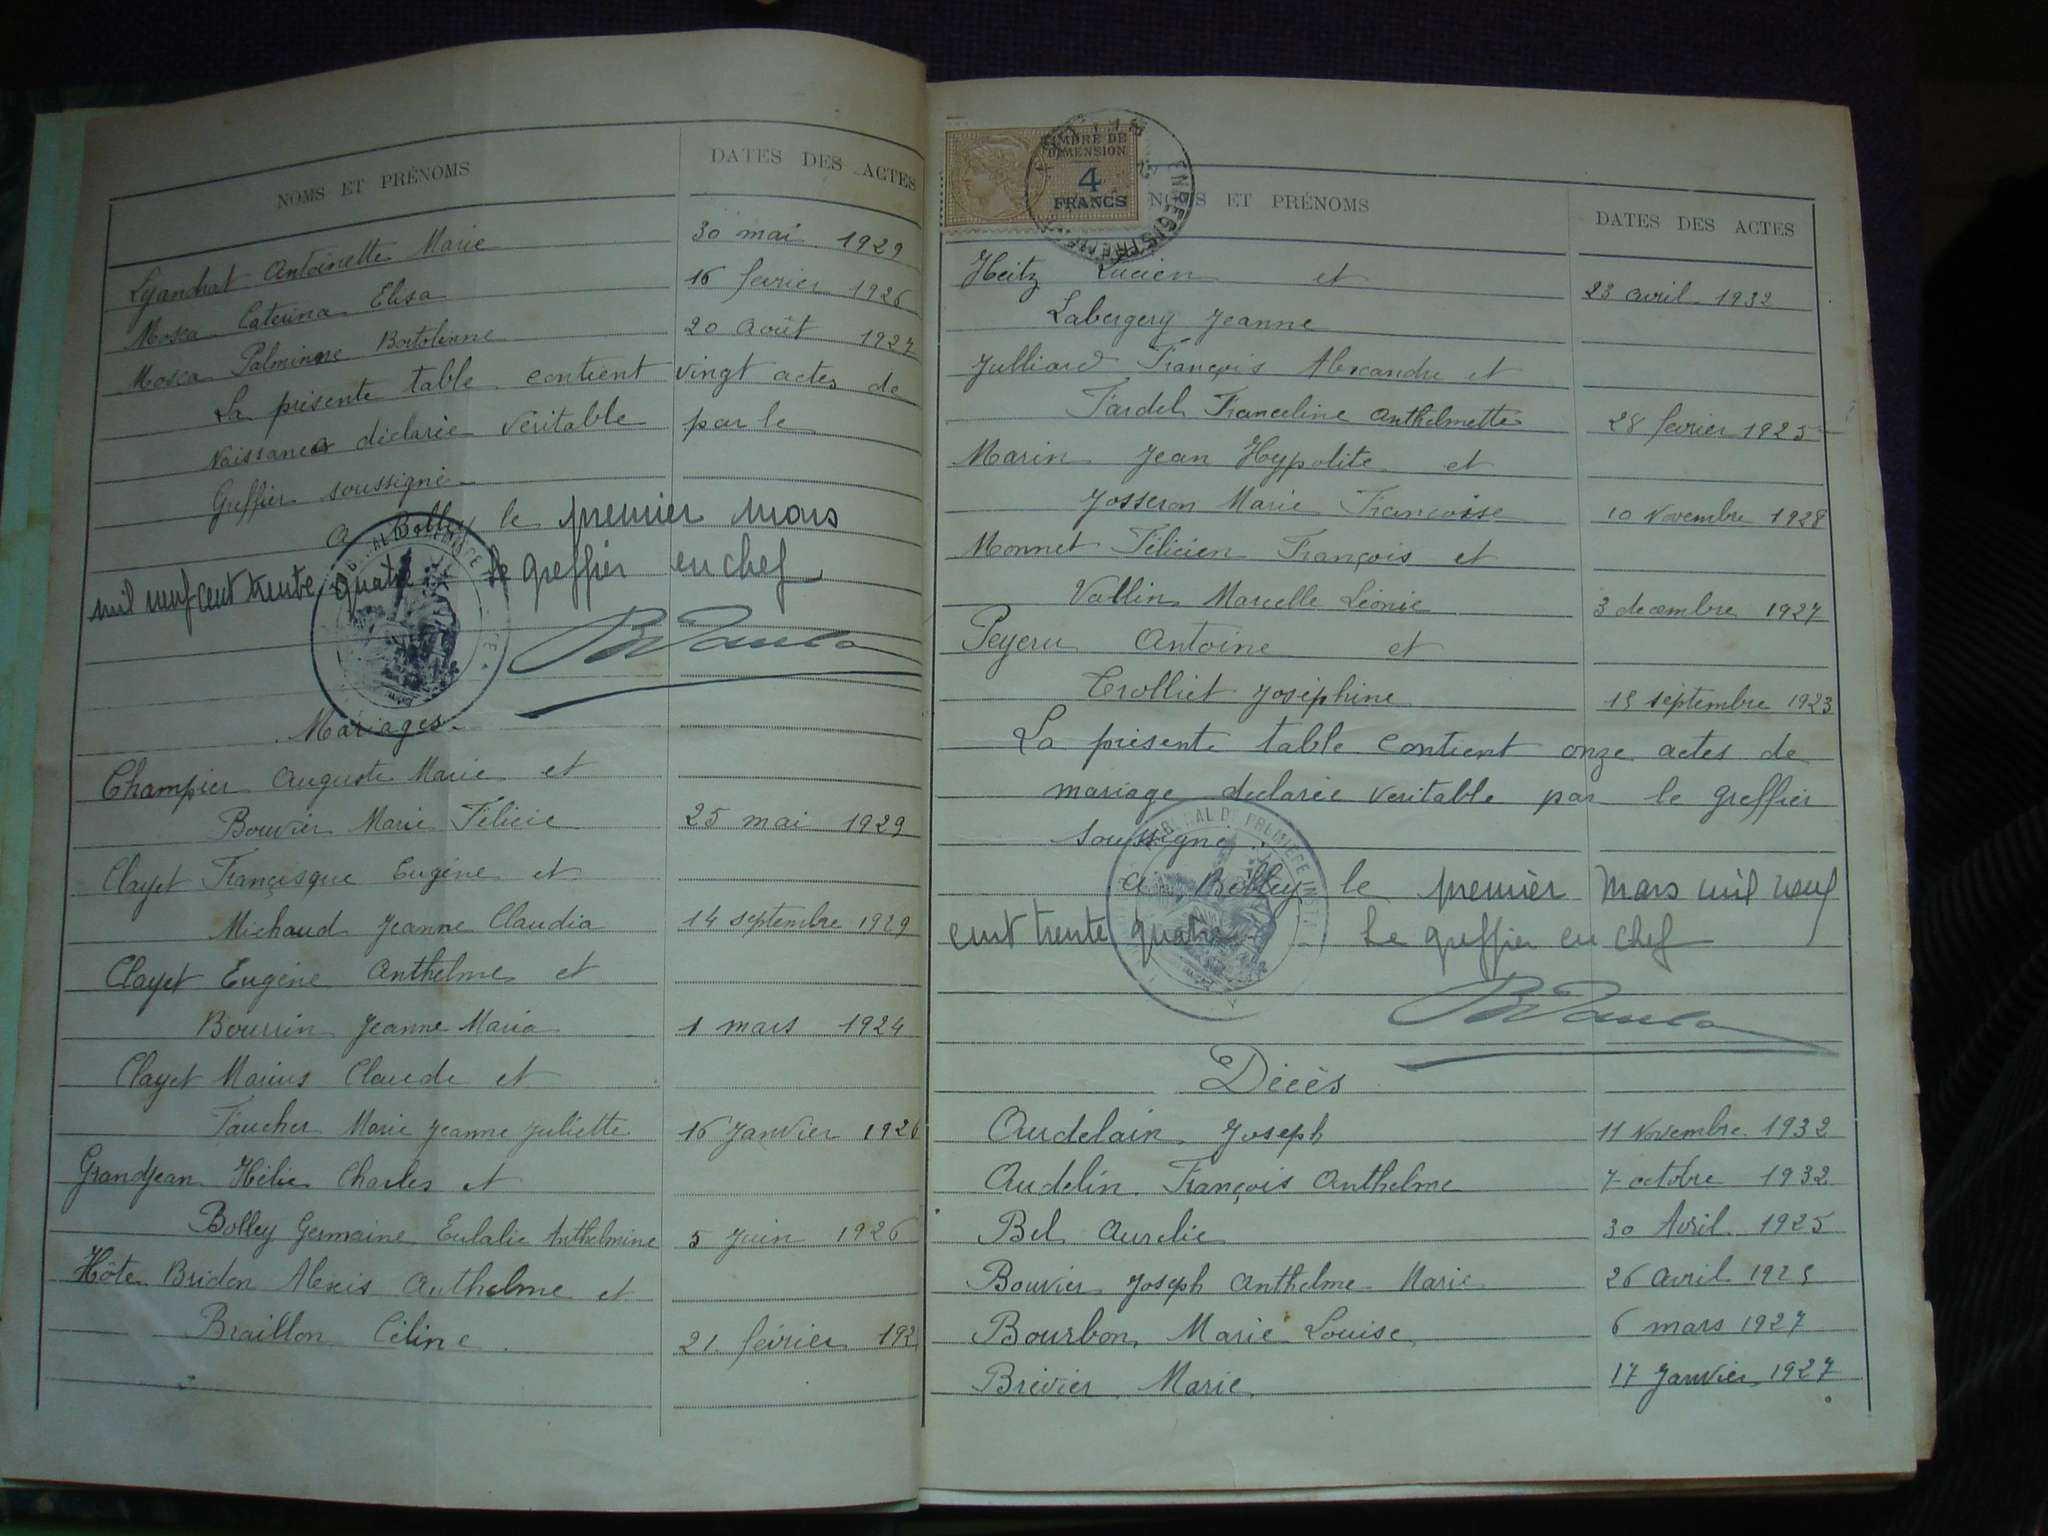 NOMS ET PRÉNOMS DATES DES ACTES
Lyandrat Antoinette Marie 30 mai 1929
Mosca Caterina Elisa 16 fevrier 1926
Mosca Palmine Bortolinne 20 Août 1927
La présente table contient vingt actes de
Naissances déclarée véritable par le
Greffier soussigné
a Belley le premier mars
mil neuf cent trente quatre. Le greffier en chef
Mariages.
Champier Auguste Marie et
Bouvier Marie Félicie 25 mai 1929
Clayet Françisque Eugène et
Michaud Jeanne Claudia 14 septembre 1929
Clayet Eugène Anthelme et
Bourrin Jeanne Maria 1 mars 1924
Clayet Marius Claude et
Faucher Marie Jeanne Juliette 16 Janvier 1926
Grandjean Hélie Charles et
Bolley Germaine Eulalie Anthelmine 5 Juin 1926
Hôte Bridon Alexis Anthelme et
Braillon Céline. 21 février 192
TIMBRE DE
DIMENSION
4
FRANCS
ENREGISTREMENT
NOMS ET PRÉNOMS DATES DES ACTES
Heitz Lucien et
Labergery Jeanne 23 avril 1932
Julliard François Alexandre et
Fardel Franceline Anthelmette 28 fevrier 1925
Marin Jean Hypolite et
Josseron Marie Francoise 10 Novembre 1928
Monnet Félicien François et
Vallin Marcelle Léonie 3 decembre 1927
Peyeru Antoine et
Trolliet Joséphine 15 septembre 1923
La présente table contient onze actes de
mariage declarée veritable par le greffier
soussigné.
a Belley le premier mars mil neuf
cent trente quatre Le greffier en chef
Décès
Audelain Joseph 11 Novembre 1932
Audelin François Anthelme 7 octobre 1932
Bel Aurelie 30 Avril 1925
Bouvier Joseph Anthelme Marie 26 avril 1925
Bourbon Marie Louise 6 mars 1927
Brévier Marie 17 Janvier 1927